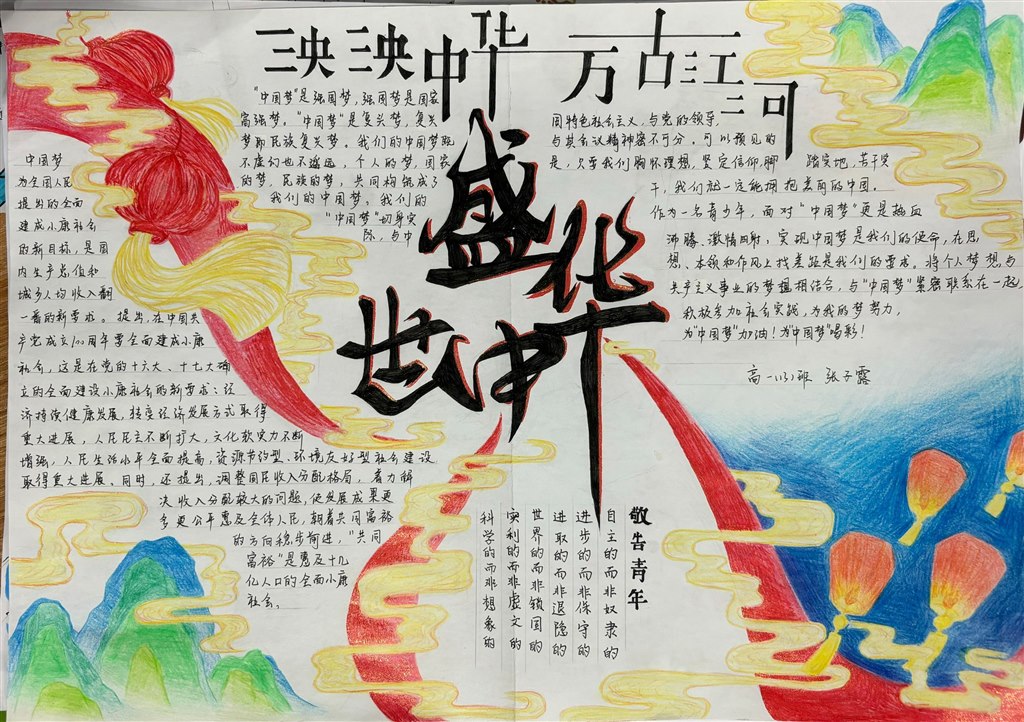 泱泱中华 万古江河
盛世中华
中国梦
为全国人民
提出的全面
建成小康社会
的新目标，是国
内生产总值和
城乡人均收入翻
一番的新要求。提出，在中国共
产党成立100周年要全面建成小康
社会，这是在党的十六大、十七大确
立的全面建设小康社会的新要求：经
济持续健康发展，转变经济发展方式取得
重大进展，人民民主不断扩大，文化软实力不断
增强，人民生活水平全面提高，资源节约型、环境友好型社会建设
取得重大进展。同时，还提出，调整国民收入分配格局，着力解
决收入分配较大的问题，使发展成果更
多更公平惠及全体人民，朝着共同富裕
的方向稳步前进，“共同
富裕”是惠及十几
亿人口的全面小康
社会。
“中国梦”是强国梦，强国梦是国家
富强梦。“中国梦”是复兴梦，复兴
梦即民族复兴梦。我们的中国梦既
不虚幻也不遥远，个人的梦，国家
的梦，民族的梦，共同构组成了
我们的中国梦。我们的
“中国梦”切身实
际，与中
国特色社会主义，与党的领导，
与其会议精神密不可分。可以预见的
是，只要我们胸怀理想，坚定信仰，脚踏实地，苦干实
干，我们就一定能拥抱美丽的中国。
作为一名青少年，面对“中国梦”更是热血
沸腾、激情四射，实现中国梦是我们的使命，在思
想、本领和作风上找差距是我们的要求。将个人梦想与
共产主义事业的梦想相结合，与“中国梦”紧密联系在一起，
积极参加社会实践，为我的梦努力，
为“中国梦”加油！为“中国梦”喝彩！
高一(13)班 张子露
敬告青年
自主的而非奴隶的
进步的而非保守的
进取的而非退隐的
世界的而非锁国的
实利的而非虚文的
科学的而非想象的